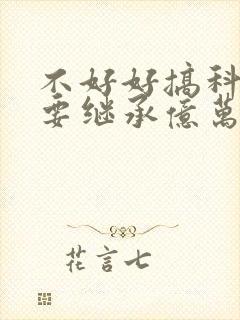 不好好搞科
要继承億萬
花言七